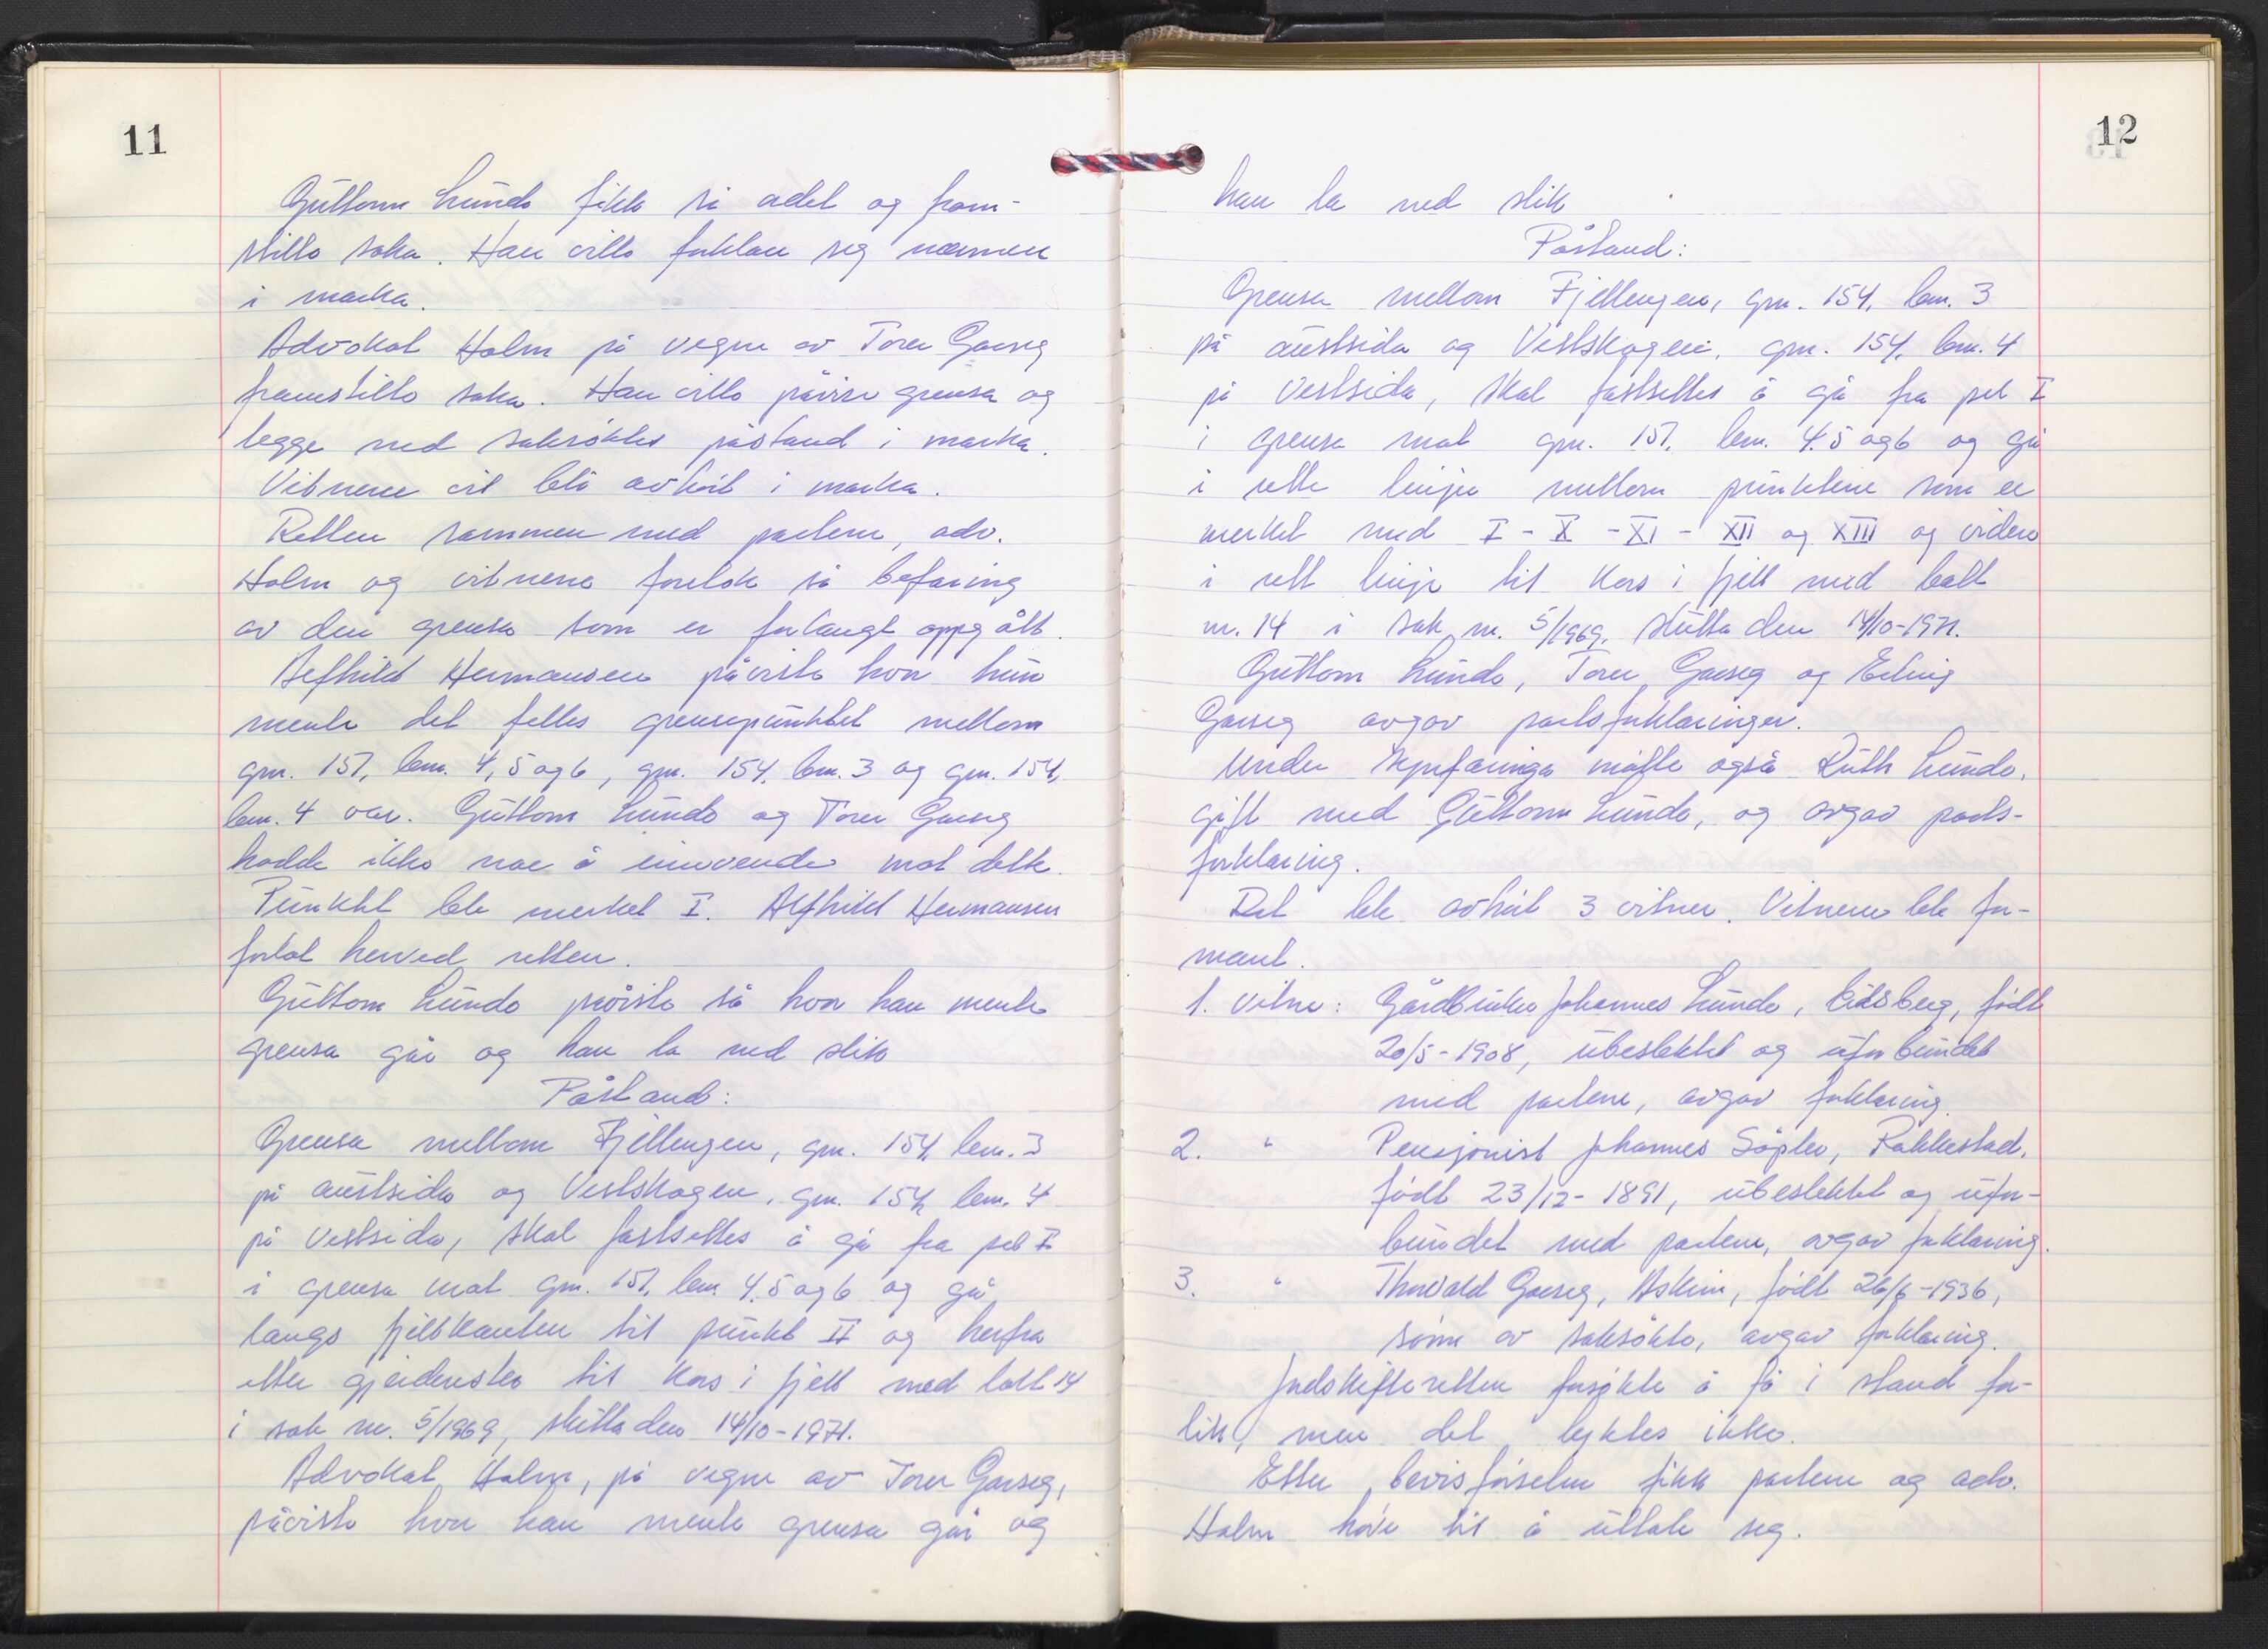 11
Guttorm Lunde fikk så ordet og fram-
stilte saka. Han ville forklare seg nærmere
i marka.
Advokat Holm på vegne av Torer Gaaseg
framstilte saka. Han ville påvise grensa og
legge ned saksøktes påstand i marka.
Vitnene vil bli avhørt i marka.
Retten sammen med partene, adv.
Holm og vitnene foretok så befaring
av den grensa som er forlangt oppgått.
Alfhild Hermansen påviste hvor hun
mente det felles grensepunktet mellom
gnr. 157, bnr. 4, 5 og 6, gnr. 154, bnr. 3 og gnr. 154,
bnr. 4 var. Guttorm Lunde og Torer Gaaseg
hadde ikke noe å innvende mot dette.
Punktet ble merket I. Alfhild Hermansen
forlot herved retten.
Guttorm Lunde påviste så hvor han mente
grensa går og han la ned slik
Påstand:
Grensa mellom Fjellengen, gnr. 154, bnr. 3
på austsida og Vestskogen, gnr. 154, bnr. 4
på vestsida, skal fastsettes å gå fra pel I
i grensa mot gnr. 157, bnr. 4, 5 og 6 og gå
langs fjellkanten til punkt II og herfra
etter gjerdester til kors i fjell med bolt 14
i sak nr. 5/1969, slutta den 14/10-1971.
Advokat Holm, på vegne av Torer Gaaseg,
påviste hvor han mente grensa går og
12
han la ned slik
Påstand:
Grensa mellom Fjellengen, gnr. 154, bnr. 3
på austsida og Vestskogen, gnr. 154, bnr. 4
på vestsida, skal fastsettes å gå fra pel I
i grensa mot gnr. 157, bnr. 4, 5 og 6 og gå
i rette linjer mellom punktene som er
merket med I - X - XI - XII og XIII og videre
i rett linje til kors i fjell med bolt
nr. 14 i sak nr. 5/1969, slutta den 14/10-1971.
Guttorm Lunde, Torer Gaaseg og Erling
Gaaseg avgav partsforklaringer.
Under synfaringa møtte også Ruth Lunde,
gift med Guttorm Lunde, og avgav parts-
forklaring.
Det ble avhørt 3 vitner. Vitnene ble for-
mant.
1. vitne: Gårdbruker Johannes Lunde, Eidsberg, født
20/5-1908, ubeslektet og uforbundet
med partene, avgav forklaring.
2. " Pensjonist Johannes Søpler, Rakkestad,
født 23/12-1891, ubeslektet og ufor-
bundet med partene, avgav forklaring.
3. " Thorvald Gaaseg, Askim, født 26/6-1936,
sønn av saksøkte, avgav forklaring.
Jordskifteretten forsøkte å få i stand for-
lik, men det lyktes ikke.
Etter bevisførselen fikk partene og adv.
Holm høve til å uttale seg.